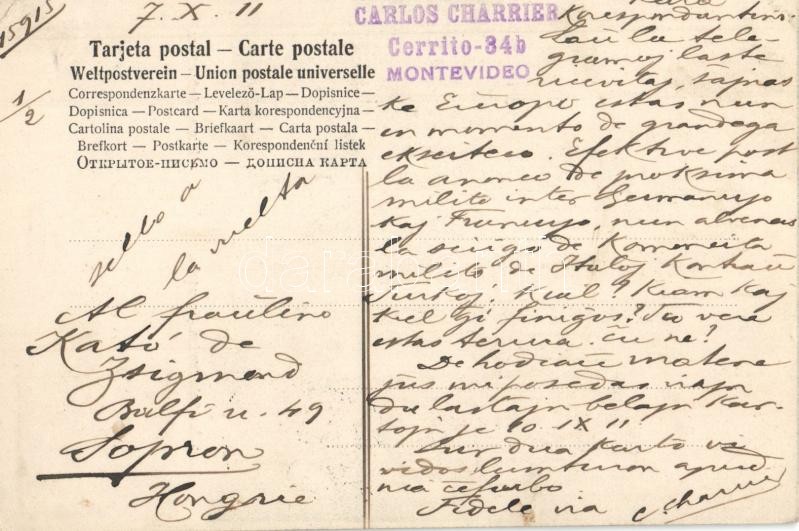 15915
7.X.11
1/2
CARLOS CHARRIER
Cerrito-34b
MONTEVIDEO
Tarjeta postal — Carte postale
Weltpostverein — Union postale universelle
Correspondenzkarte — Levelező-Lap — Dopisnice —
Dopisnica — Postcard — Karta korespondencyjna —
Cartolina postale — Briefkaart — Carta postala —
Brefkort — Postkarte — Korespondenční listek
ОТКРЫТОЕ-ПИСЬМО — ДОПИСНА КАРТА
sello a
la vuelta
Al fraŭlino
Kató de
Zsigmond
Balfi u. 49
Sopron
Hongrie
Kara
Korespondantino
Laŭ la tele-
gramoj laste
ricevitaj, ŝajnas
ke Eŭropo estas nun
en momento de grandega
eksciteco. Efektive post
la anonco de proksima
milito inter Germanujo
kaj Francujo, nun alvenas
la sciigo de komencita
milito de Italoj kontraŭ
Turkoj. Kial? Kiam kaj
kiel ĝi finiĝos? Tio vere
estas terura. ĉu ne?
De hodiaŭ matene
jus mi posedas viajn
du lastajn belajn kar-
tojn je 10.IX.11
Sur dua karto vi
vidos lumturon apud
nia ĉefurbo
Fidele via Charrier